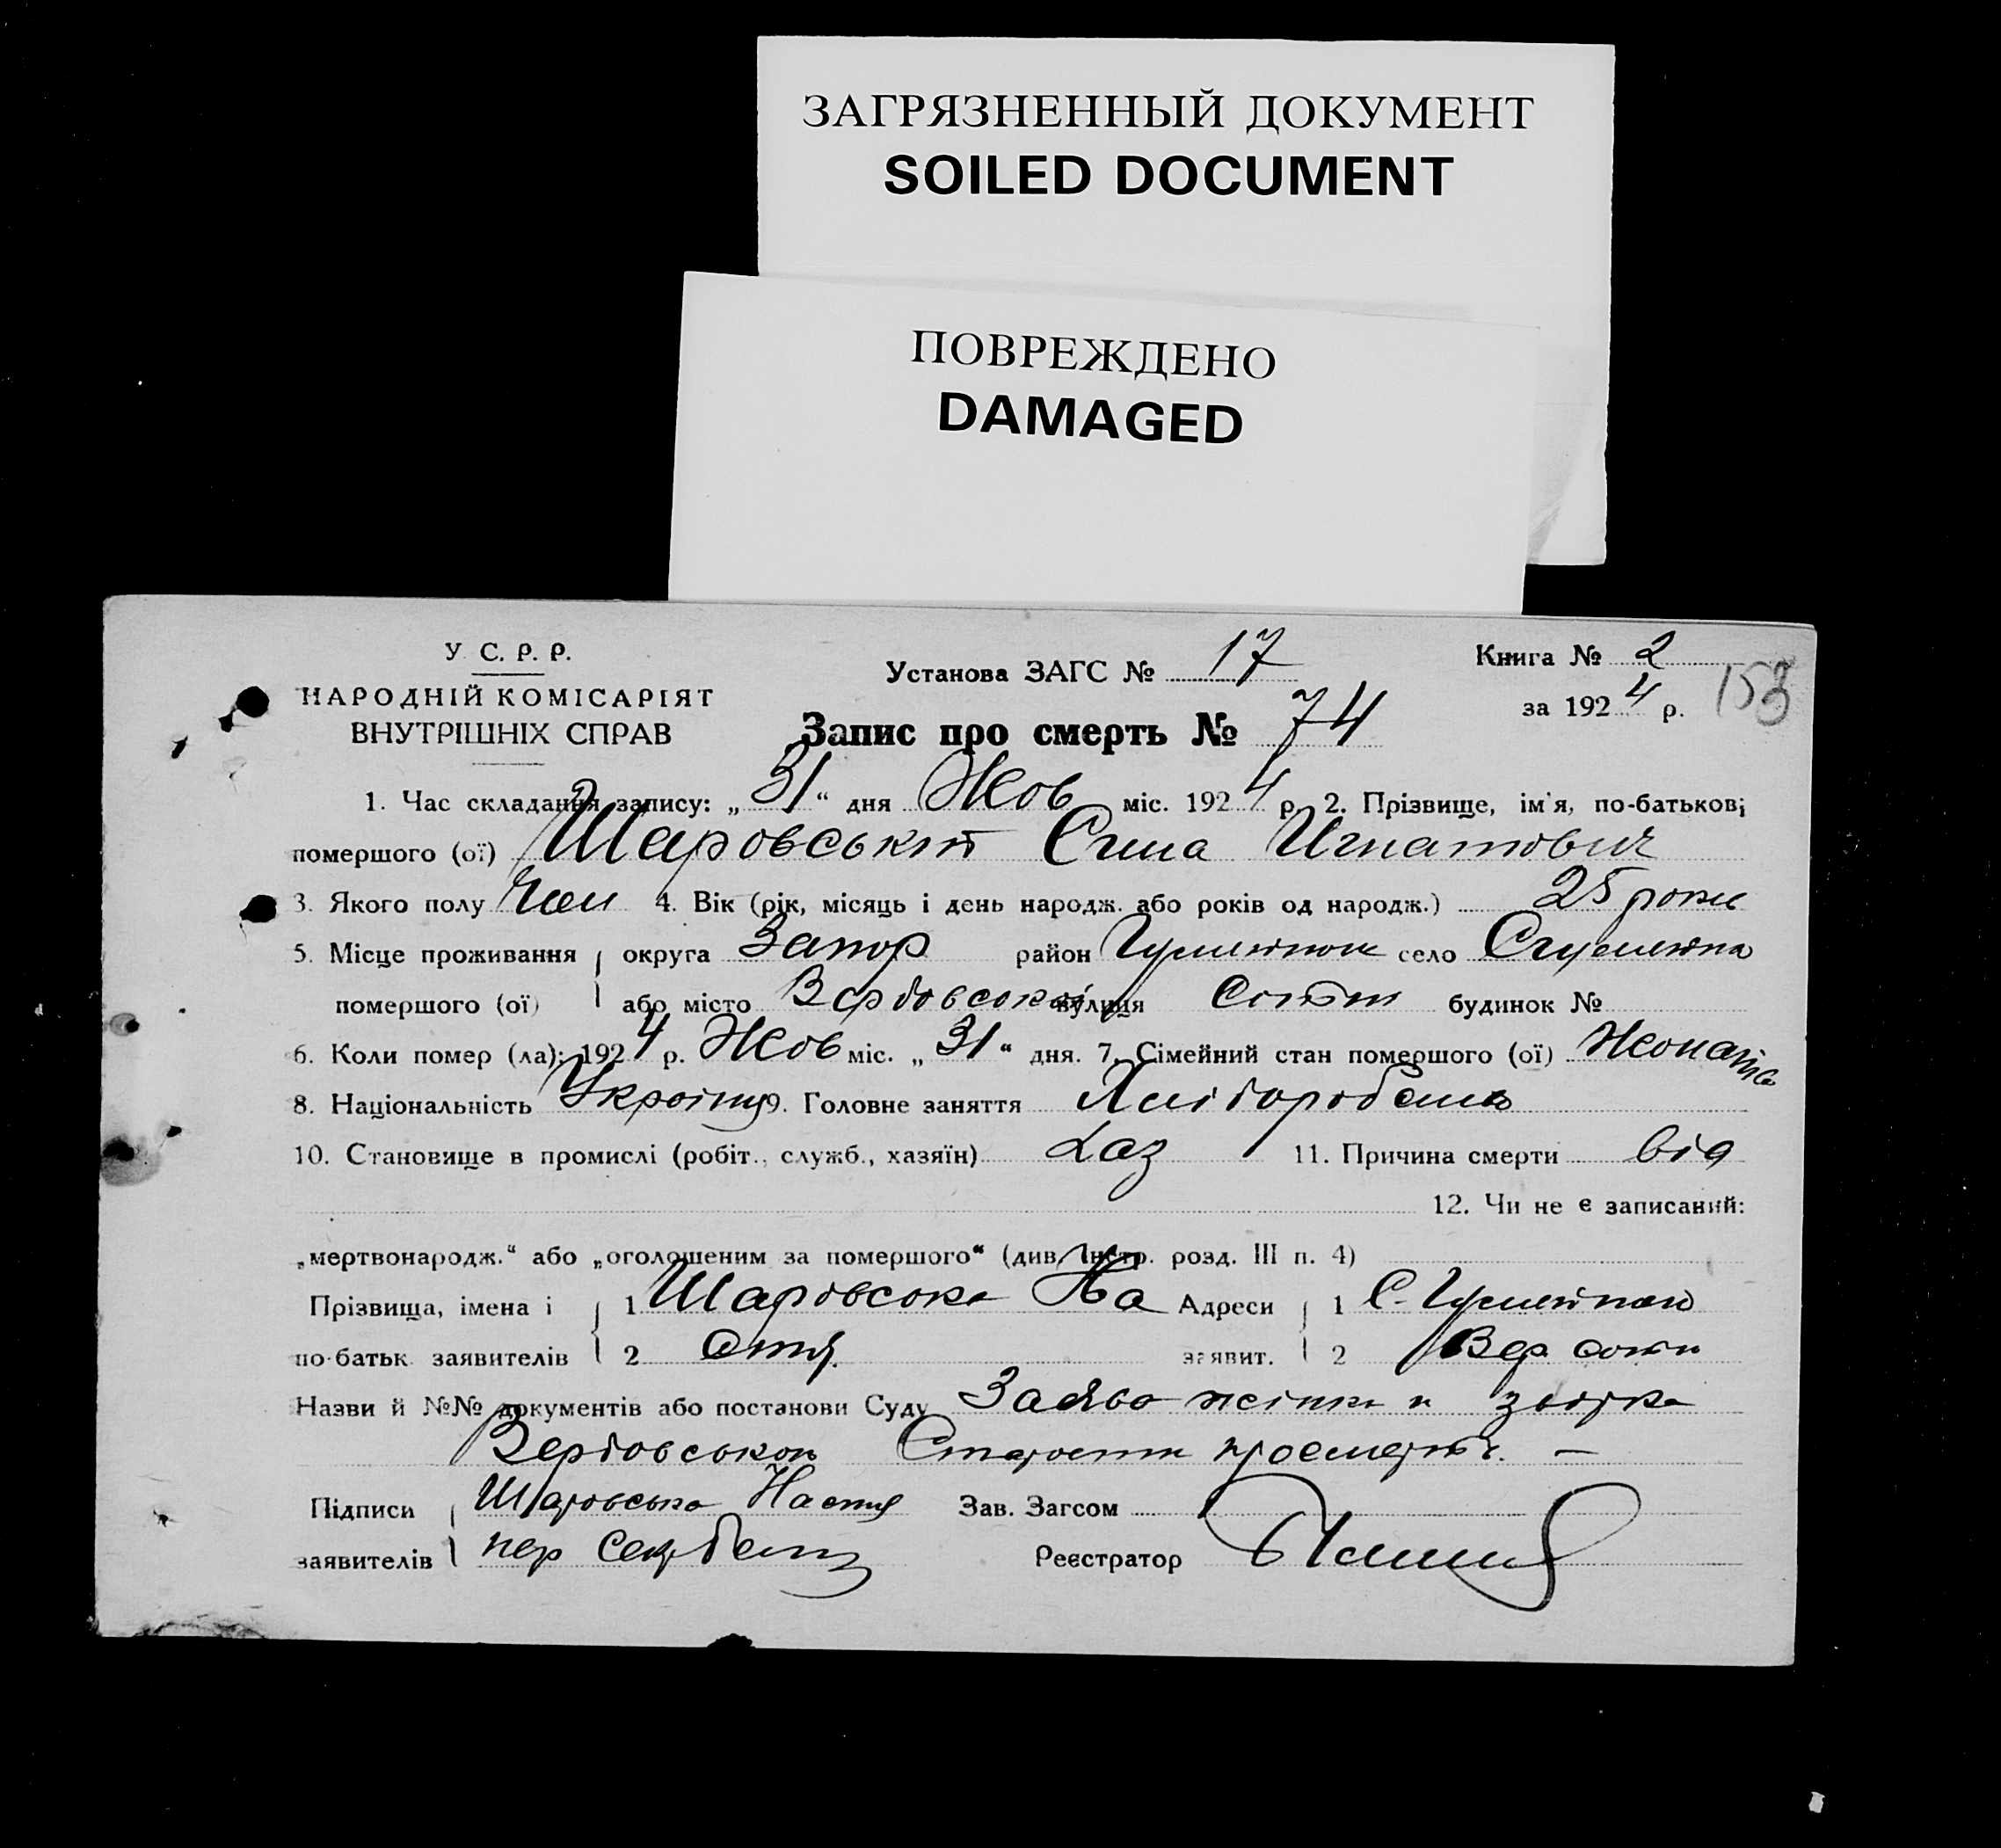 ЗАГРЯЗНЕННЫЙ ДОКУМЕНТ
SOILED DOCUMENT
ПОВРЕЖДЕНО
DAMAGED
У. С. Р. Р.
НАРОДНІЙ КОМІСАРІЯТ
ВНУТРІШНІХ СПРАВ
Установа ЗАГС № 17
Книга № 2
за 1924 р.
153
Запис про смерть № 74
1. Час складання запису: „31“ дня Жов міс. 1924 р. 2. Прізвище, ім'я, по-батькові
помершого (ої) Шаровський Игнатович
3. Якого полу Чол 4. Вік (рік, місяць і день народж. або років од народж.) 25 роки
5. Місце проживання округа Запор район село
помершого (ої) або місто Вербовської вулиця Сотни будинок №
6. Коли помер (ла): 1924 р. Жов міс. „31“ дня. 7. Сімейний стан помершого (ої) Жонатий
8. Національність 9. Головне заняття
10. Становище в промислі (робіт., служб., хазяїн) Хаз 11. Причина смерти від
12. Чи не є записаний:
„мертвонародж.“ або „оголошеним за помершого“ (див. Інстр. розд. III п. 4)
Прізвища, імена і 1 Шаровська На Адреси 1 С.
по-батьк. заявителів 2 стя. заявит. 2 Вер сотн
Назви й №№ документів або постанови Суду Заява жінки и
Вербовської Старости
Підписи Шаровська Настя Зав. Загсом
заявителів пер Реєстратор